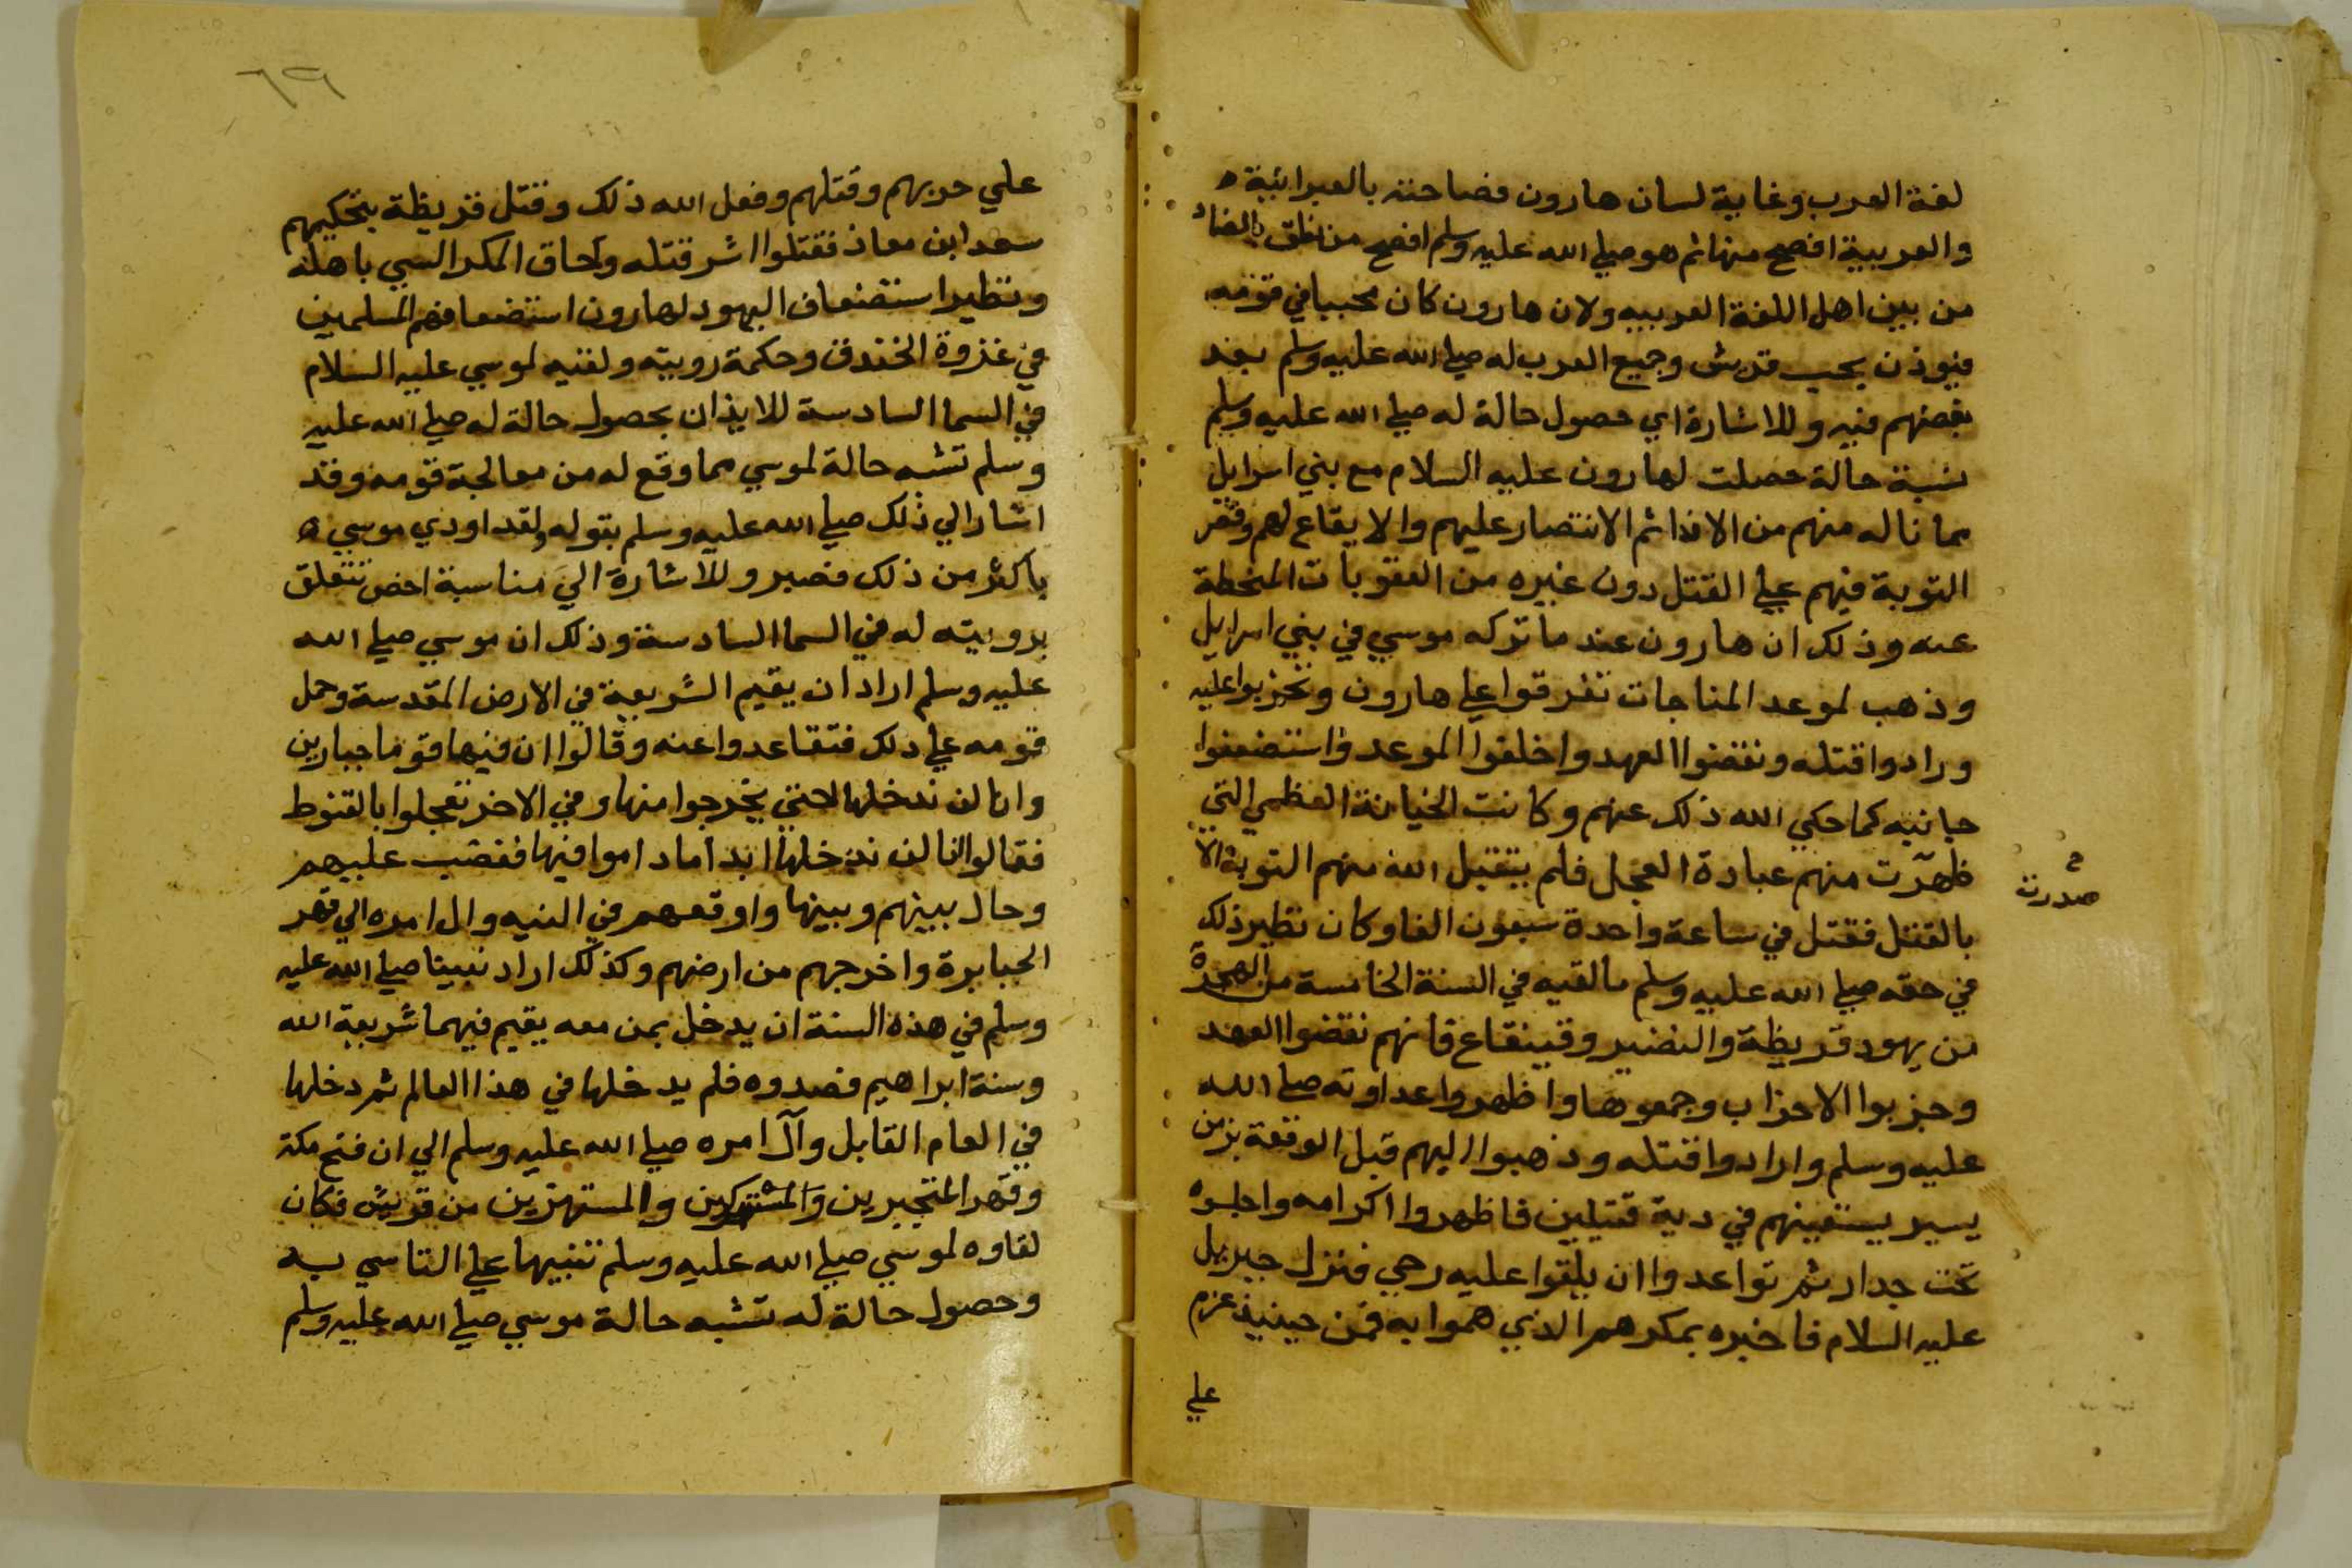 لغة العرب وغاية لسان هارون فصاحته بالعبرانية ه
والعربية افصح منها ثم هو صلي الله عليه وسلم افصح من نطق بالضاد
من بين اهل اللغة العربيه ولان هارون كان محببا في قومه
فيوذن بحب قريش وجميع العرب له صلي الله عليه وسلم بعد
بغضهم فيه وللاشارة اي حصول حالة له صلي الله عليه وسلم
شبة حالة حصلت لهارون عليه السلام مع بني اسرايل
مما ناله منهم من الاذا ثم الانتصار عليهم والايقاع لهم وقصر
التوبة فيهم علي القتل دون غيره من العقوبات المنحطة
عنه وذلك ان هارون عند ما تركه موسي في بني اسرايل
وذهب لموعد المناجات تفرقوا علي هارون وتحزبوا عليه
ورادوا قتله ونقضوا العهد واخلفوا الموعد واستضعفوا
جانبه كما حكي الله ذلك عنهم وكانت الخيانة العظمي التي
ظهرت منهم عبادة العجل فلم يتقبل الله منهم التوبة الا
صدرت
بالقتل فقتل في ساعة واحدة سبعون الفا وكان نظير ذلك
في حقه صلي الله عليه وسلم ما لقيه في السنة الخامسة من الهجرة
من يهود قريظة والنضير وقينقاع فانهم نقضوا العهد
وحزبوا الاحزاب وجمعوها واظهروا عداوته صلي الله
عليه وسلم وارادوا قتله وذهبوا اليهم قبل الوقعة بزمن
يسير يستعينهم في دية قتيلين فاظهروا اكرامه واجلسوه
تحت جدار ثم تواعدوا ان يلقوا عليه رحي فنزل جبريل
عليه السلام فاخبره بمكرهم الذي هموا به فمن حينيذ عزم
علي
٦٩
علي حربهم وقتلهم وفعل الله ذلك وقتل قريظة بتحكيمهم
سعد ابن معاذ فقتلوا اشر قتله وحاق المكر السي باهله
ونظير استضعاف اليهود لهارون استضعافهم المسلمين
في غزوة الخندق وحكمة رويته ولقيه لموسي عليه السلام
في السما السادسة للايذان بحصول حالة له صلي الله عليه
وسلم تشبه حالة لموسي مما وقع له من معالجة قومه وقد
اشار الي ذلك صلي الله عليه وسلم بقوله ولقد اوذي موسي ه
باكثر من ذلك فصبر وللاشارة الي مناسبة اخص تتعلق
برويته له في السما السادسة وذلك ان موسي صلي الله
عليه وسلم اراد ان يقيم الشريعة في الارض المقدسة وحمل
قومه علي ذلك فتقاعدوا عنه وقالوا ان فيها قوما جبارين
وانا لن ندخلها حتي يخرجوا منها وفي الاخر تعجلوا بالقنوط
فقالوا انا لن ندخلها ابدا ما داموا فيها فغضب عليهم
وحال بينهم وبينها واوقعهم في التيه وال امره الي قهر
الجبابرة واخرجهم من ارضهم وكذلك اراد نبينا صلي الله عليه
وسلم في هذه السنة ان يدخل بمن معه يقيم فيهما شريعة الله
وسنة ابراهيم فصدوه فلم يدخلها في هذا العالم ثم دخلها
في العام القابل وآل امره صلي الله عليه وسلم الي ان فتح مكة
وقهر المتجبرين والمشركين والمستهزين من قريش فكان
لقاوه لموسي صلي الله عليه وسلم تنبيها علي التاسي به
وحصول حالة له تشبه حالة موسي صلي الله عليه وسلم